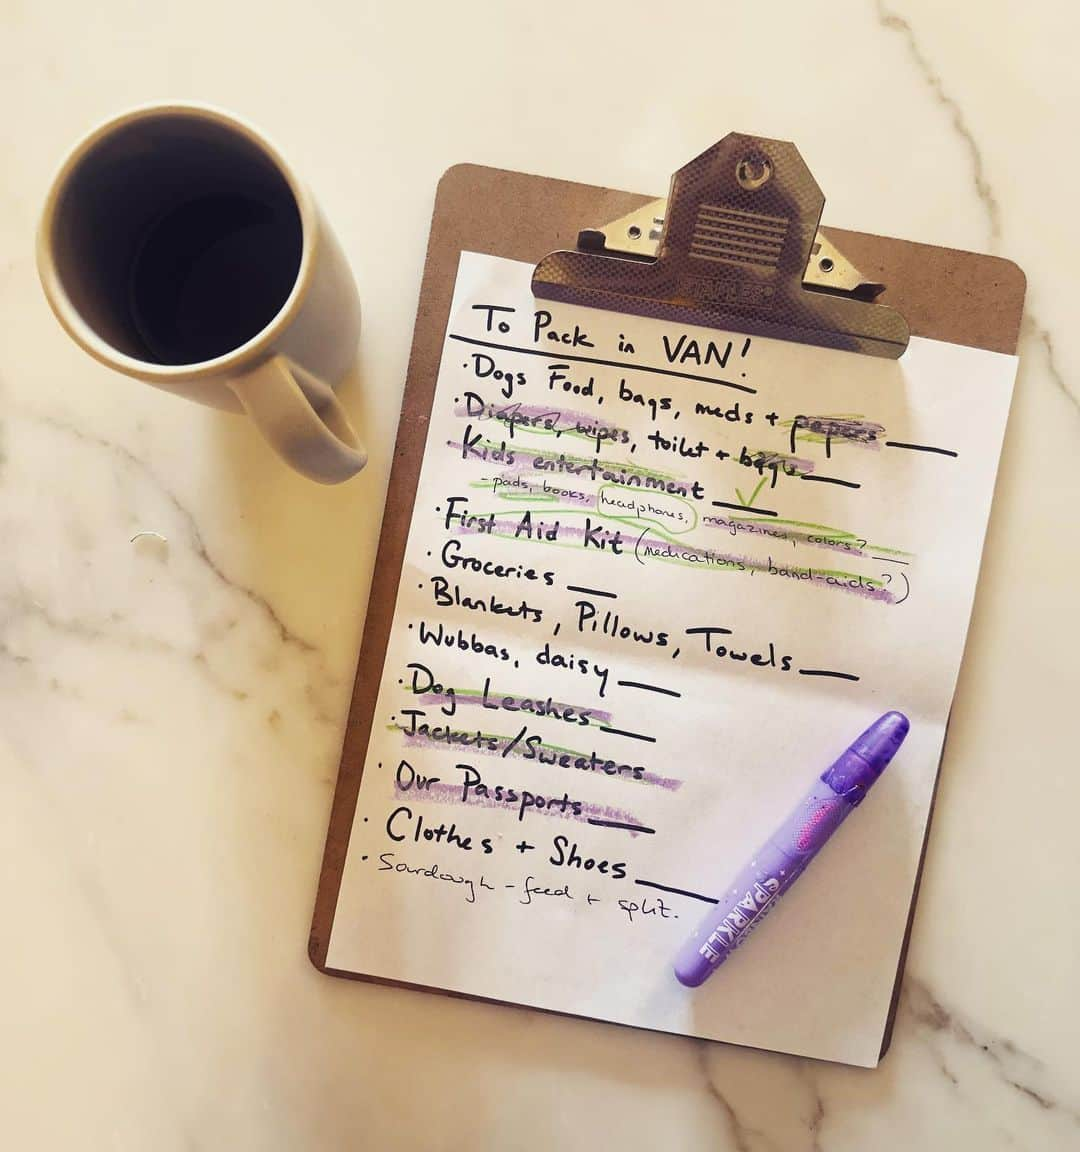 To Pack in VAN!
· Dogs Food, bags, meds + papers
· Diapers, wipes, toilet + bags
· Kids entertainment
- pads, books, headphones, magazines, colors?
· First Aid Kit (medications, band-aids?)
· Groceries
· Blankets, Pillows, Towels
· Wubbas, daisy
· Dog Leashes
· Jackets/Sweaters
· Our Passports
· Clothes + Shoes
· Sourdough - feed + split.
SPARKLE